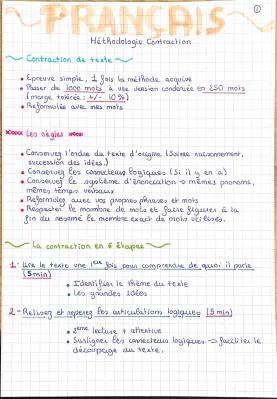 FRANÇAIS
1
Méthodologie Contraction
Contraction de texte
• Epreuve simple, 1 fois la méthode acquise
• Passer de 1000 mots à une version condensée en 250 mots
(marge tolérée : +/- 10%)
• Reformulée avec mes mots
Les règles
• Conservez l'ordre du texte d'origine (Suivre raisonnement,
succession des idées.)
• Conservez les connecteurs logiques (Si il y en a)
• Conservez le système d'énonciation → mêmes pronoms,
mêmes temps verbaux
• Reformulez avec vos propres phrases et mots
• Respectez le nombre de mots et faire figurer à la
fin du résumé le nombre exact de mots utilisés.
La contraction en 6 étapes
1- Lire le texte une 1ère fois pour comprendre de quoi il parle
(5 min)
• Identifier le thème du texte
• Les grandes idées
2- Relisez et repérez les articulations logiques (5 min)
• 2ème lecture + attentive
• Surligner les connecteurs logiques → faciliter le
découpage du texte.